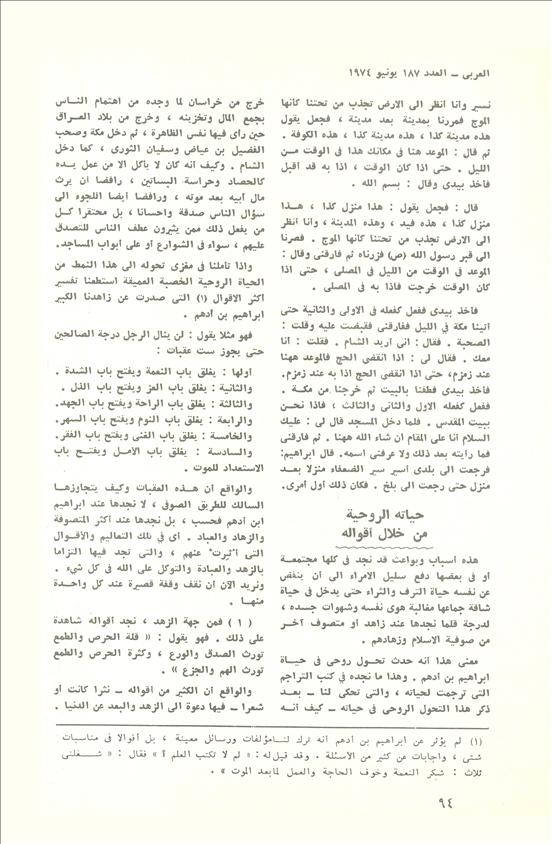 العربى ــ العدد ١٨٧ يونيو ١٩٧٤
نسير وأنا انظر الى الارض تجذب من تحتنا كأنها
الموج فمررنا بمدينة بعد مدينة ، فجعل يقول
هذه مدينة كذا ، هذه مدينة كذا ، هذه الكوفة .
ثم قال : الموعد هنا فى مكانك هذا فى الوقت مـن
الليل . حتى اذا كان الوقت ، اذا به قد أقبل
فأخذ بيدى وقال : بسم الله .
قال : فجعل يقول : هذا منزل كذا ، هـذا
منزل كذا ، هذه فيد ، وهذه المدينة ، وأنا انظر
الى الارض تجذب من تحتنا كأنها الموج . فصرنا
الى قبر رسول الله (ص) فزرناه ثم فارقنى وقال :
الموعد فى الوقت من الليل فى المصلى ، حتى اذا
كان الوقت خرجت فاذا به فى المصلى .
فأخذ بيدى ففعل كفعله فى الاولى والثانية حتى
أتينا مكة فى الليل ففارقنى فقبضت عليه وقلت :
الصحبة . فقال : انى أريد الشام . فقلت : أنا
معك . فقال لى : اذا انقضى الحج فالموعد ههنا
عند زمزم، حتى اذا انقضى الحج اذا به عند زمزم.
فأخذ بيدى فطفنا بالبيت ثم خرجنا من مكـة .
ففعل كفعله الاول والثانى والثالث ، فاذا نحـن
ببيت المقدس . فلما دخل المسجد قال لى : عليك
السلام أنا على المقام ان شاء الله ههنا . ثم فارقنى
فما رأيته بعد ذلك ولا عرفنى اسمه. قال ابراهيم:
فرجعت الى بلدى أسير سير الضعفاء منزلا بعـد
منزل حتى رجعت الى بلخ . فكان ذلك أول أمرى.
حياته الروحية
من خلال أقواله
هذه أسباب وبواعث قد نجد فى كلها مجتمعـة
أو فى بعضها دفع سليل الامراء الى أن ينفض
عن نفسه حياة الترف والثراء حتى يدخل فى حياة
شاقة جماعها مغالبة هوى نفسه وشهوات جسده ،
لدرجة قلما نجدها عند زاهد أو متصوف آخـر
من صوفية الاسلام وزهادهم .
معنى هذا أنه حدث تحـول روحى فى حيـاة
ابراهيم بن أدهم . وهذا ما نجده فى كتب التراجم
التى ترجمت لحياته ، والتى تحكى لنا ــ بعـد
ذكر هذا التحول الروحى فى حياته ــ كيف أنـه
خرج من خراسان لما وجده من اهتمام النـاس
بجمع المال وتخزينه ، وخرج من بلاد العـراق
حين رأى فيها نفس الظاهرة ، ثم دخل مكة وصحب
الفضيل بن عياض وسفيان الثورى ، كما دخل
الشام . وكيف أنه كان لا يأكل الا من عمل يـده
كالحصاد وحراسة البساتين ، رافضا أن يرث
مال أبيه بعد موته ، ورافضا أيضا اللجوء الى
سؤال الناس صدقة واحسانا ، بل محتقرا كـل
من يفعل ذلك ممن يثيرون عطف الناس للتصدق
عليهم ، سواء فى الشوارع أو على أبواب المساجد.
واذا تأملنا فى مغزى تحوله الى هذا النمط من
الحياة الروحية الخصبة العميقة استطعنا تفسير
أكثر الاقوال (١) التى صدرت عن زاهدنا الكبير
ابراهيم بن أدهم .
فهو مثلا يقول : لن ينال الرجل درجة الصالحين
حتى يجوز ست عقبات :
أولها : يغلق باب النعمة ويفتح باب الشدة .
والثانية : يغلق باب العز ويفتح باب الذل .
والثالثة : يغلق باب الراحة ويفتح باب الجهد.
والرابعة : يغلق باب النوم ويفتح باب السهر.
والخامسة : يغلق باب الغنى ويفتح باب الفقر.
والسادسة : يغلق باب الامـل ويفتـح باب
الاستعداد للموت .
والواقع أن هـذه العقبات وكيف يتجاوزهـا
السالك للطريق الصوفى ، لا نجدها عند ابراهيم
ابن أدهم فحسب ، بل نجدها عند أكثر المتصوفة
والزهاد والعباد . أى فى تلك التعاليم والاقـوال
التى أثيرت عنهم ، والتى تجد فيها التزاما
بالزهد والعبادة والتوكل على الله فى كل شىء .
ونريد الآن أن نقف وقفة قصيرة عند كل واحـدة
منهـا .
( ١ ) فمن جهة الزهد ، نجد أقواله شاهدة
على ذلك . فهو يقول : « قلة الحرص والطمع
تورث الصدق والورع ، وكثرة الحرص والطمع
تورث الهم والجزع » .
والواقع أن الكثير من أقواله ــ نثرا كانت أو
شعرا ــ فيها دعوة الى الزهد والبعد عن الدنيا .
(١) لم يؤثر عن ابراهيم بن أدهم أنه ترك لنا مؤلفات ورسائل معينة ، بل أقوالا فى مناسبات
شتى ، واجابات عن كثير من الاسئلة . وقد قيل له : « لم لا تكتب العلم ؟ » فقال : « شـغلتنى
ثلاث : شكر النعمة وخوف الحاجة والعمل لما بعد الموت » .
٩٤